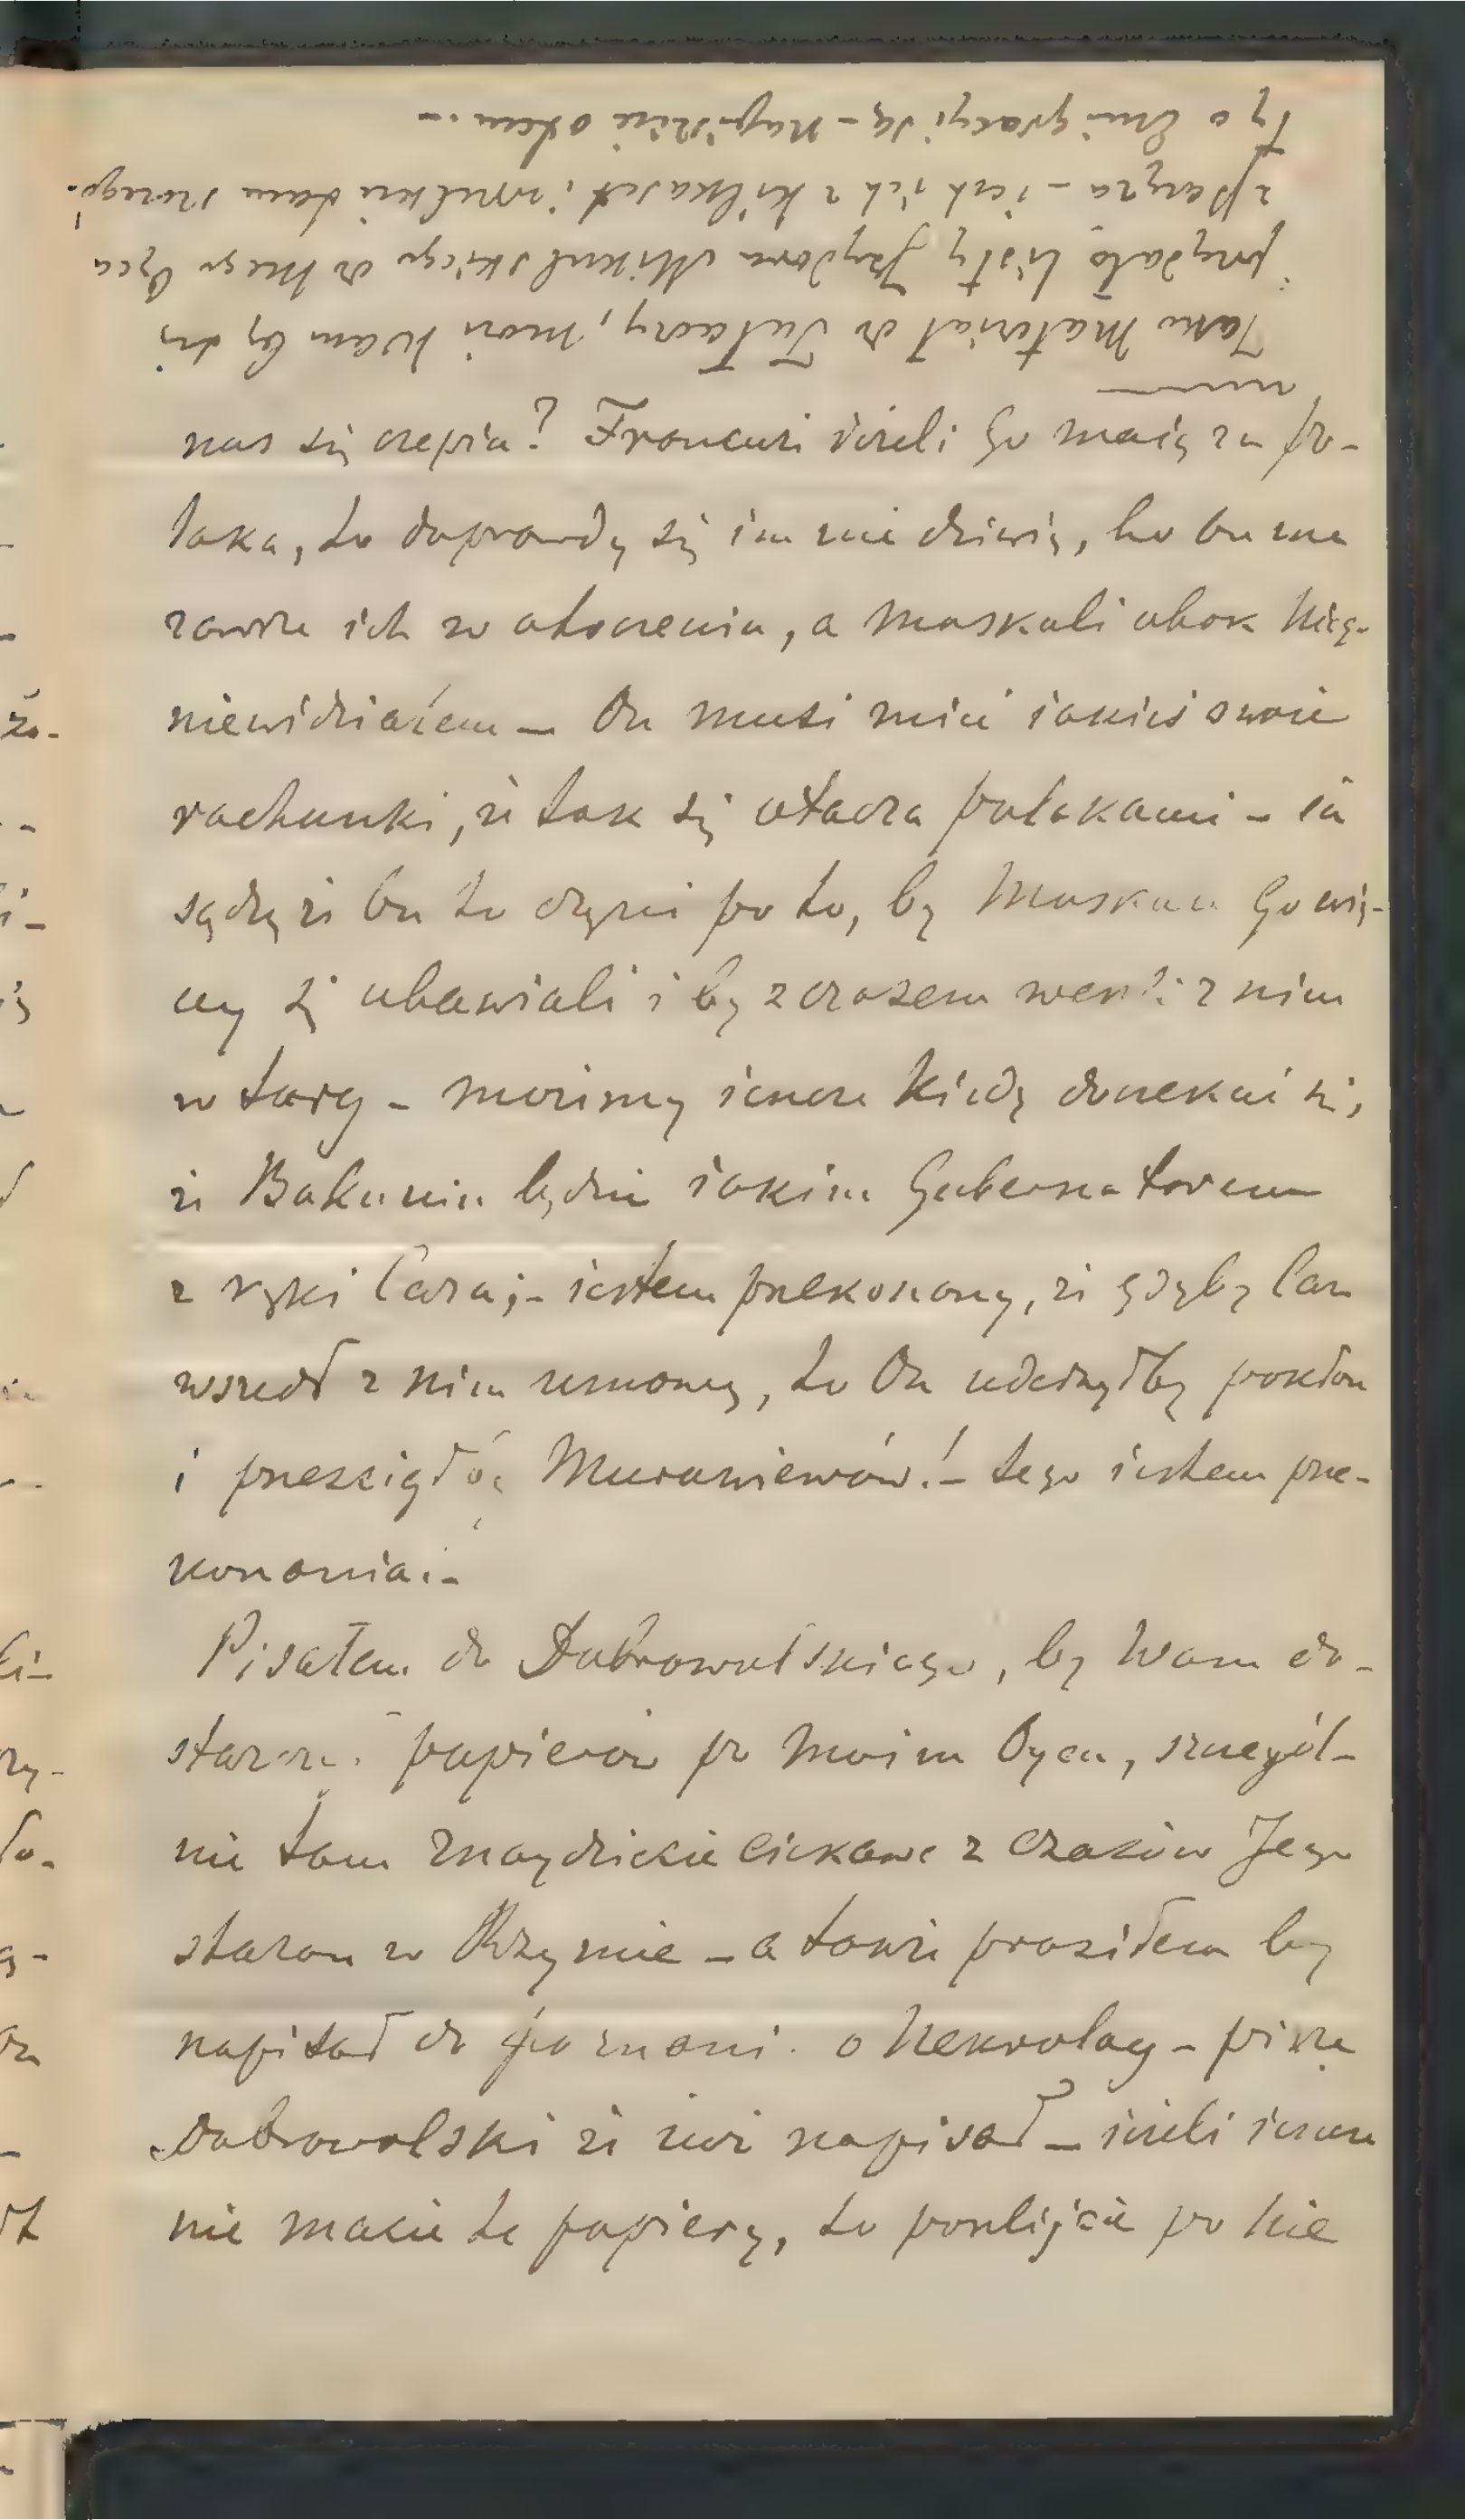 nas się czepia? Francuzi jeżeli Go maią za po-
laka, to doprawdy się im nie dziwię, bo on ma
zawsze ich w otoczeniu, a moskali obok Niego
niewidziałem — On musi mieć iakieś swoie
rachunki, że tak się otacza polakami – ia
sądzę że On to czyni po to, by Moskale Go wię-
cey się obawiali i by z czasem weszli z nim
w targ – możemy ieszcze kiedy doczekać się,
że Bakunin będzie iakim Gubernatorem
z ręki Cara; – iestem przekonany, że gdyby Car
wszedł z nim umowę, to On uderzyłby pokłon
i prześcigłby Murawiewów! – tego iestem prze-
konania. –
Pisałem do Dobrowolskiego, by Wam do-
starczył papierów po Moim Oycu, szczegól-
nie tam znaydziecie ciekawe z czasów Jego
starań w Rzymie – a także prosiłem by
napisał do poznani. o Nekrolog – pisze
Dobrowolski że już napisał – ieżeli ieszcze
nie macie te papiery, to poszlijcie po Nie
Jako Materiał do Tułaczy, może Wam by się
przydało listy Izydora Mikulskiego do Mego Oyca
z Paryża – iest ich z kilkaset i wielkie tam szczegó-
ły o Emigracyi są – napiszcie o tem. –